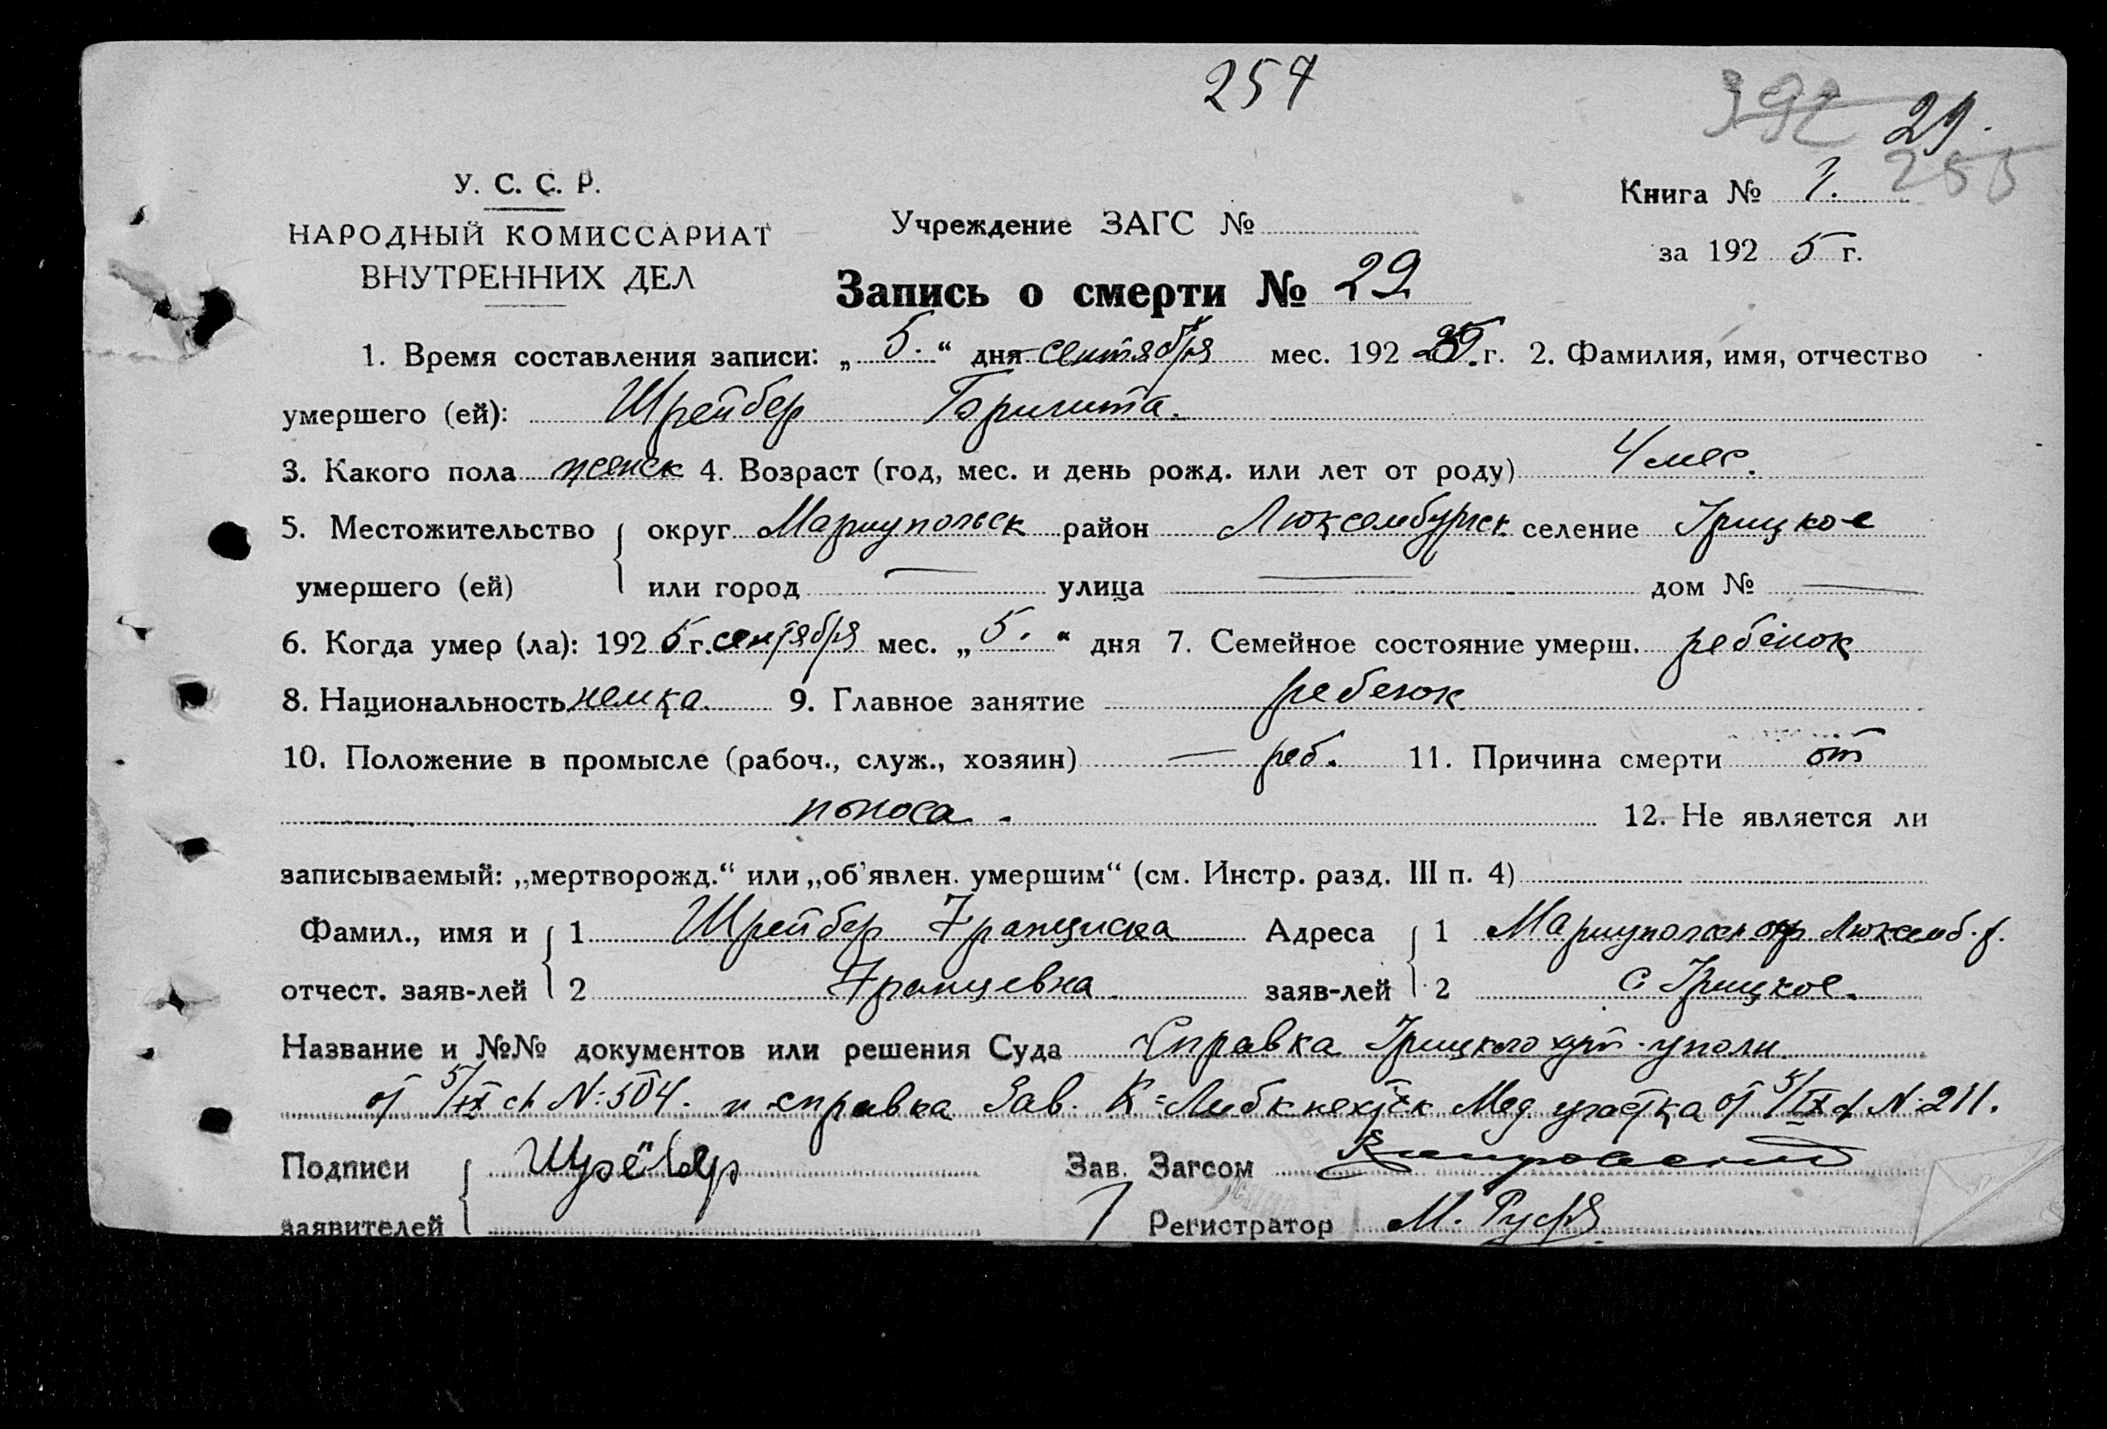 257
392
29.
255
У. С. С. Р.
НАРОДНЫЙ КОМИССАРИАТ
ВНУТРЕННИХ ДЕЛ
Учреждение ЗАГС №
Книга № 1.
за 192 5 г.
Запись о смерти № 29
1. Время составления записи: „ 5. “ дня сентября мес. 192 25 г. 2. Фамилия, имя, отчество
умершего (ей): Шрейбер
3. Какого пола женск 4. Возраст (год, мес. и день рожд. или лет от роду) 4 мес.
5. Местожительство округ Мариупольск район Люксембургск селение Грицкое
умершего (ей) или город — улица — дом № —
6. Когда умер (ла): 192 5 г. сентября мес. „ 5. “ дня 7. Семейное состояние умерш. ребенок
8. Национальность немка. 9. Главное занятие ребенок
10. Положение в промысле (рабоч., служ., хозяин) — реб. 11. Причина смерти от
поноса. 12. Не является ли
записываемый: „мертворожд.“ или „об'явлен. умершим“ (см. Инстр. разд. III п. 4)
Фамил., имя и 1 Шрейбер Франциска Адреса 1 Мариупольск окр Люксемб. р.
отчест. заяв-лей 2 Францевна заяв-лей 2 с Грицкое.
Название и №№ документов или решения Суда Справка Грицкого уполн.
от 5/IX N: 504. и справка Зав. К=Либкнехтск Мед. участка от 5/IX N: 211.
Подписи Шрёбер Зав. Загсом
заявителей Регистратор М.